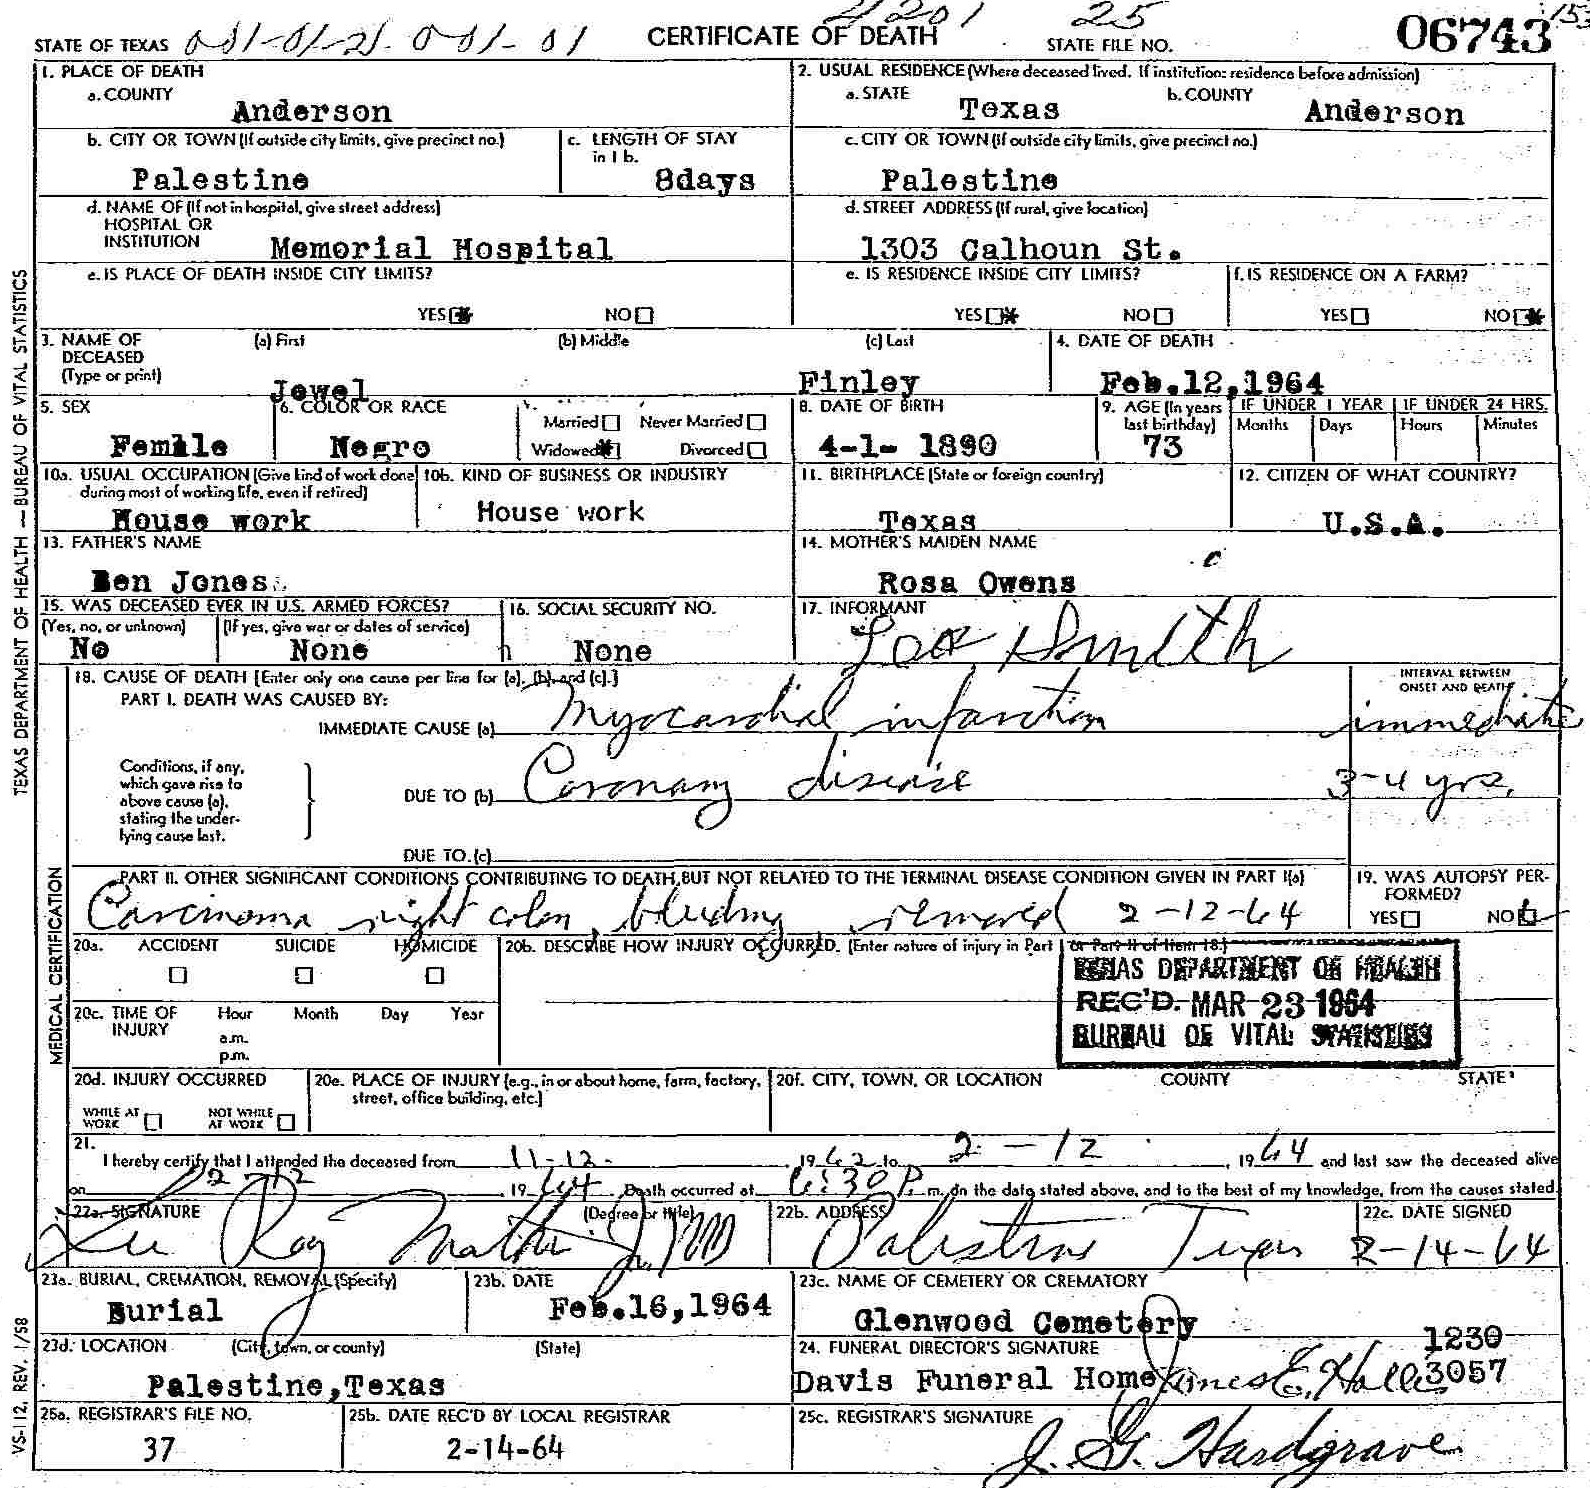 4201 25 153
STATE OF TEXAS 001-01-21-001-01 CERTIFICATE OF DEATH STATE FILE NO. 06743
1. PLACE OF DEATH
a. COUNTY
Anderson
2. USUAL RESIDENCE (Where deceased lived. If institution: residence before admission)
a. STATE Texas b. COUNTY Anderson
b. CITY OR TOWN (If outside city limits, give precinct no.)
Palestine
c. LENGTH OF STAY
in 1 b.
8days
c. CITY OR TOWN (If outside city limits, give precinct no.)
Palestine
d. NAME OF (If not in hospital, give street address)
HOSPITAL OR
INSTITUTION Memorial Hospital
d. STREET ADDRESS (If rural, give location)
1303 Calhoun St.
e. IS PLACE OF DEATH INSIDE CITY LIMITS?
YES NO
e. IS RESIDENCE INSIDE CITY LIMITS?
YES NO
f. IS RESIDENCE ON A FARM?
YES NO
3. NAME OF
DECEASED
(Type or print)
(a) First (b) Middle (c) Last
Jewel Finley
4. DATE OF DEATH
Feb.12,1964
5. SEX
Femile
6. COLOR OR RACE
Negro
Married Never Married
Widowed Divorced
8. DATE OF BIRTH
4-1- 1890
9. AGE (In years
last birthday)
73
IF UNDER 1 YEAR IF UNDER 24 HRS.
Months Days Hours Minutes
10a. USUAL OCCUPATION (Give kind of work done
during most of working life, even if retired)
House work
10b. KIND OF BUSINESS OR INDUSTRY
House work
11. BIRTHPLACE (State or foreign country)
Texas
12. CITIZEN OF WHAT COUNTRY?
U.S.A.
13. FATHER'S NAME
Ben Jones
14. MOTHER'S MAIDEN NAME
Rosa Owens
15. WAS DECEASED EVER IN U.S. ARMED FORCES?
(Yes, no, or unknown) (If yes, give war or dates of service)
No None
16. SOCIAL SECURITY NO.
None
17. INFORMANT
Smith
18. CAUSE OF DEATH [Enter only one cause per line for (a), (b), and (c).]
PART I. DEATH WAS CAUSED BY:
INTERVAL BETWEEN
ONSET AND DEATH
IMMEDIATE CAUSE (a) Myocardial infarction immediate
Conditions, if any,
which gave rise to
above cause (a),
stating the under-
lying cause last.
DUE TO (b) Coronary disease 3-4 yrs.
DUE TO (c)
PART II. OTHER SIGNIFICANT CONDITIONS CONTRIBUTING TO DEATH BUT NOT RELATED TO THE TERMINAL DISEASE CONDITION GIVEN IN PART I(a)
Carcinoma right colon, bleeding removed 2-12-64
19. WAS AUTOPSY PER-
FORMED?
YES NO
20a. ACCIDENT SUICIDE HOMICIDE
20b. DESCRIBE HOW INJURY OCCURRED. (Enter nature of injury in Part I or Part II of Item 18.)
TEXAS DEPARTMENT OF HEALTH
REC'D. MAR 23 1964
BUREAU OF VITAL STATISTICS
20c. TIME OF
INJURY
Hour Month Day Year
a.m.
p.m.
20d. INJURY OCCURRED
WHILE AT
WORK
NOT WHILE
AT WORK
20e. PLACE OF INJURY (e.g., in or about home, farm, factory,
street, office building, etc.)
20f. CITY, TOWN, OR LOCATION COUNTY STATE
21.
I hereby certify that I attended the deceased from 11-12- , 1962 to 2-12 , 1964 and last saw the deceased alive
on 2-12 , 1964 Death occurred at 6:30 P. m. on the date stated above, and to the best of my knowledge, from the causes stated.
22a. SIGNATURE (Degree or title)
Lee Roy Mathis Jr. MD
22b. ADDRESS
Palestine Texas
22c. DATE SIGNED
2-14-64
23a. BURIAL, CREMATION, REMOVAL (Specify)
Burial
23b. DATE
Feb.16,1964
23c. NAME OF CEMETERY OR CREMATORY
Glenwood Cemetery
23d. LOCATION (City, town, or county) (State)
Palestine,Texas
24. FUNERAL DIRECTOR'S SIGNATURE
1230
Davis Funeral Home James E. 3057
25a. REGISTRAR'S FILE NO.
37
25b. DATE REC'D BY LOCAL REGISTRAR
2-14-64
25c. REGISTRAR'S SIGNATURE
J. G. Hardgrave
TEXAS DEPARTMENT OF HEALTH — BUREAU OF VITAL STATISTICS
MEDICAL CERTIFICATION
VS-112, REV. 1/58